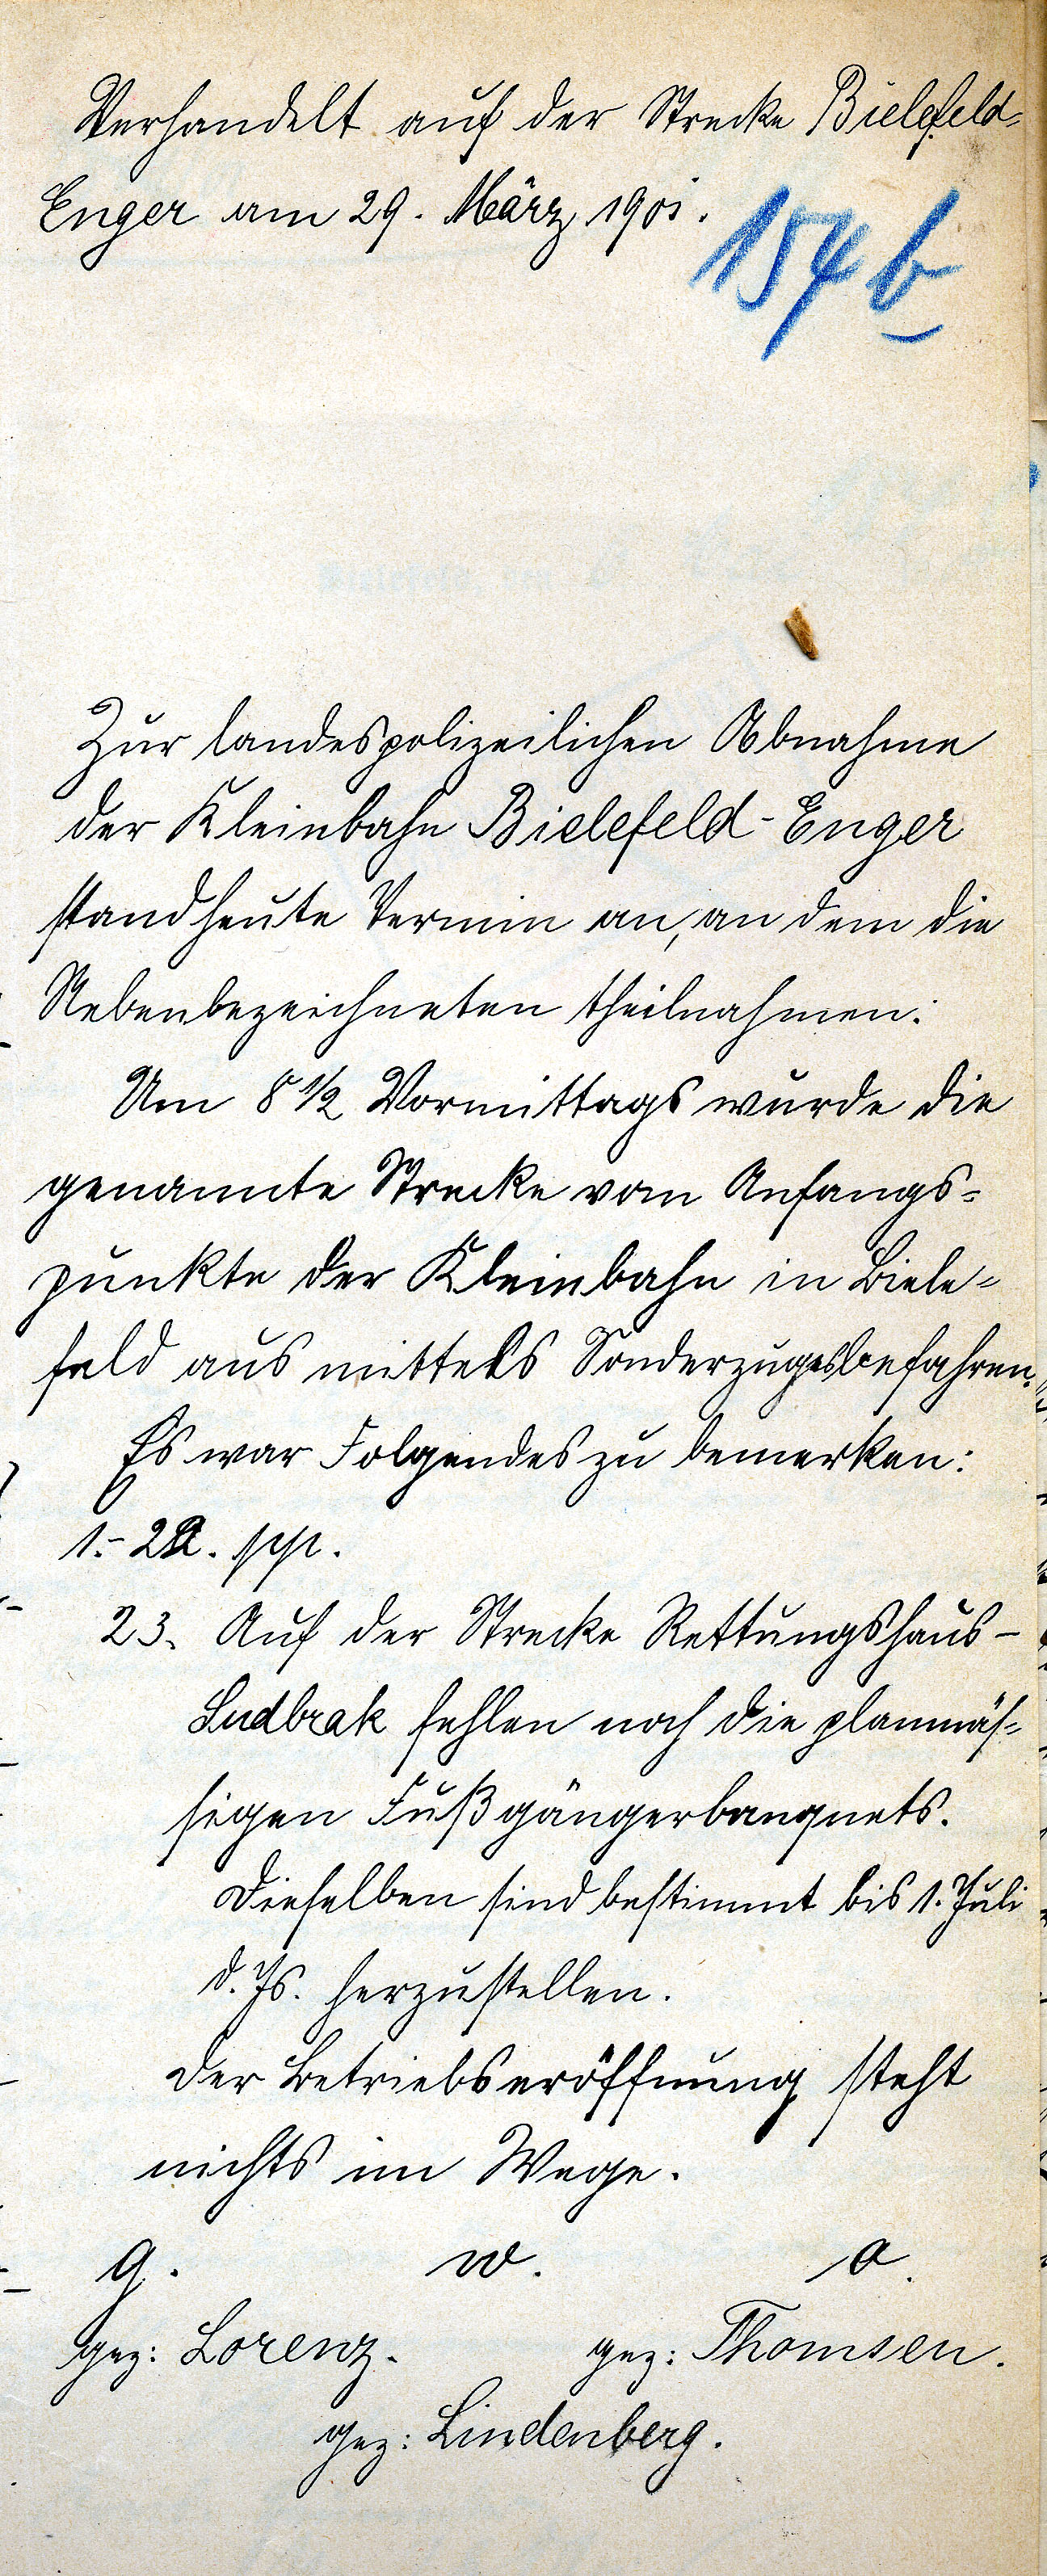 Verhandelt auf der Strecke Bielefeld-
Enger am 29. März 1901.
154 b
Zur landespolizeilichen Abnahme
der Kleinbahn Bielefeld-Enger
stand heute Termin an, an dem die
Nebenbezeichneten theilnahmen:
Um 8 1/2 Vormittags wurde die
genannte Strecke vom Anfangs-
punkte der Kleinbahn in Biele-
feld aus mittels Sonderzuges befahren.
Es war Folgendes zu bemerken:
1.-22. pp.
23. Auf der Strecke Rettungshaus-
Sudbrak fehlen noch die planmäs-
sigen Fußgängerbanquets.
Dieselben sind bestimmt bis 1. Juli
d. Js. herzustellen.
Der Betriebseröffnung steht
nichts im Wege.
g. w. o.
gez: Lorenz. gez: Thomsen.
gez: Lindenberg.